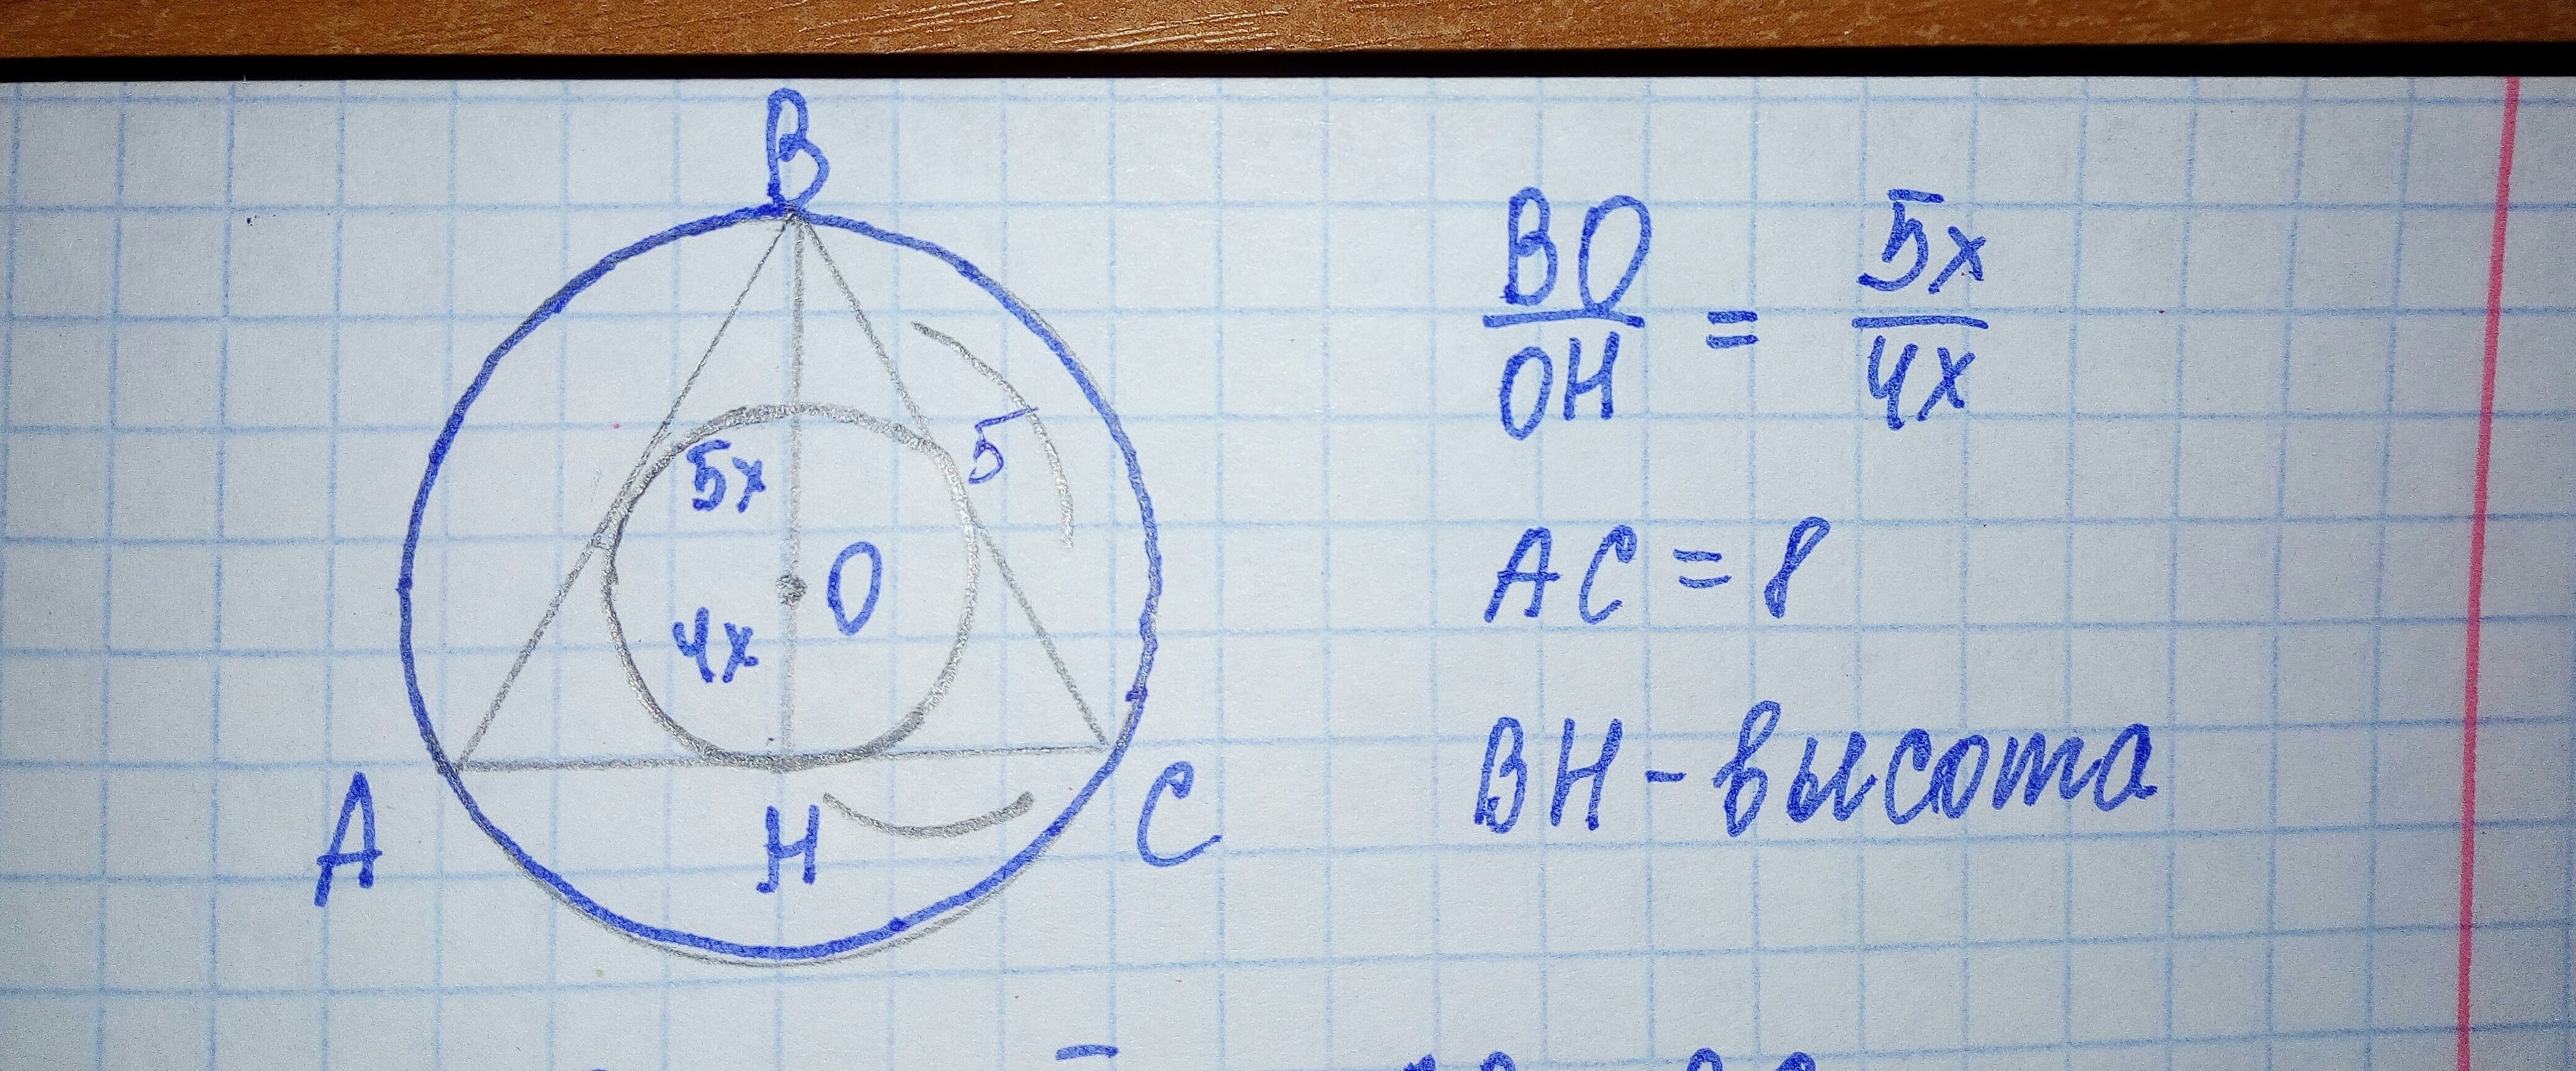 B
5x
5
O
4x
A
H
C
BO/OH = 5x/4x
AC = 8
BH - высота